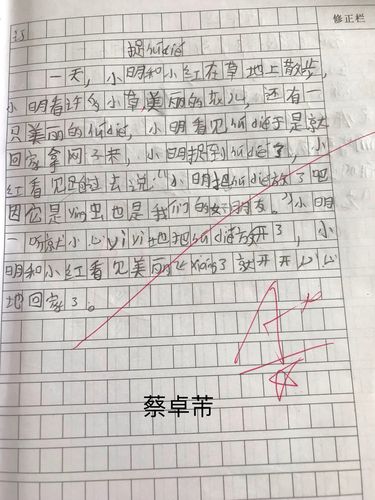 修正栏
捉húdié
一天，小明和小红在草地上散步，
小明看许多小草，美丽的花儿，还有一
只美丽的húdié，小明看见húdié于是就
回家拿网子来，小明捉到húdié了，小
红看见跑过去说：“小明把húdié放了吧
因它是yìng虫也是我们的好朋友。”小明
一听就小心yìyì地把húdié放开了，小
明和小红看见美丽飞xiáng了就开开心心
地回家了。
A+
蔡卓芾